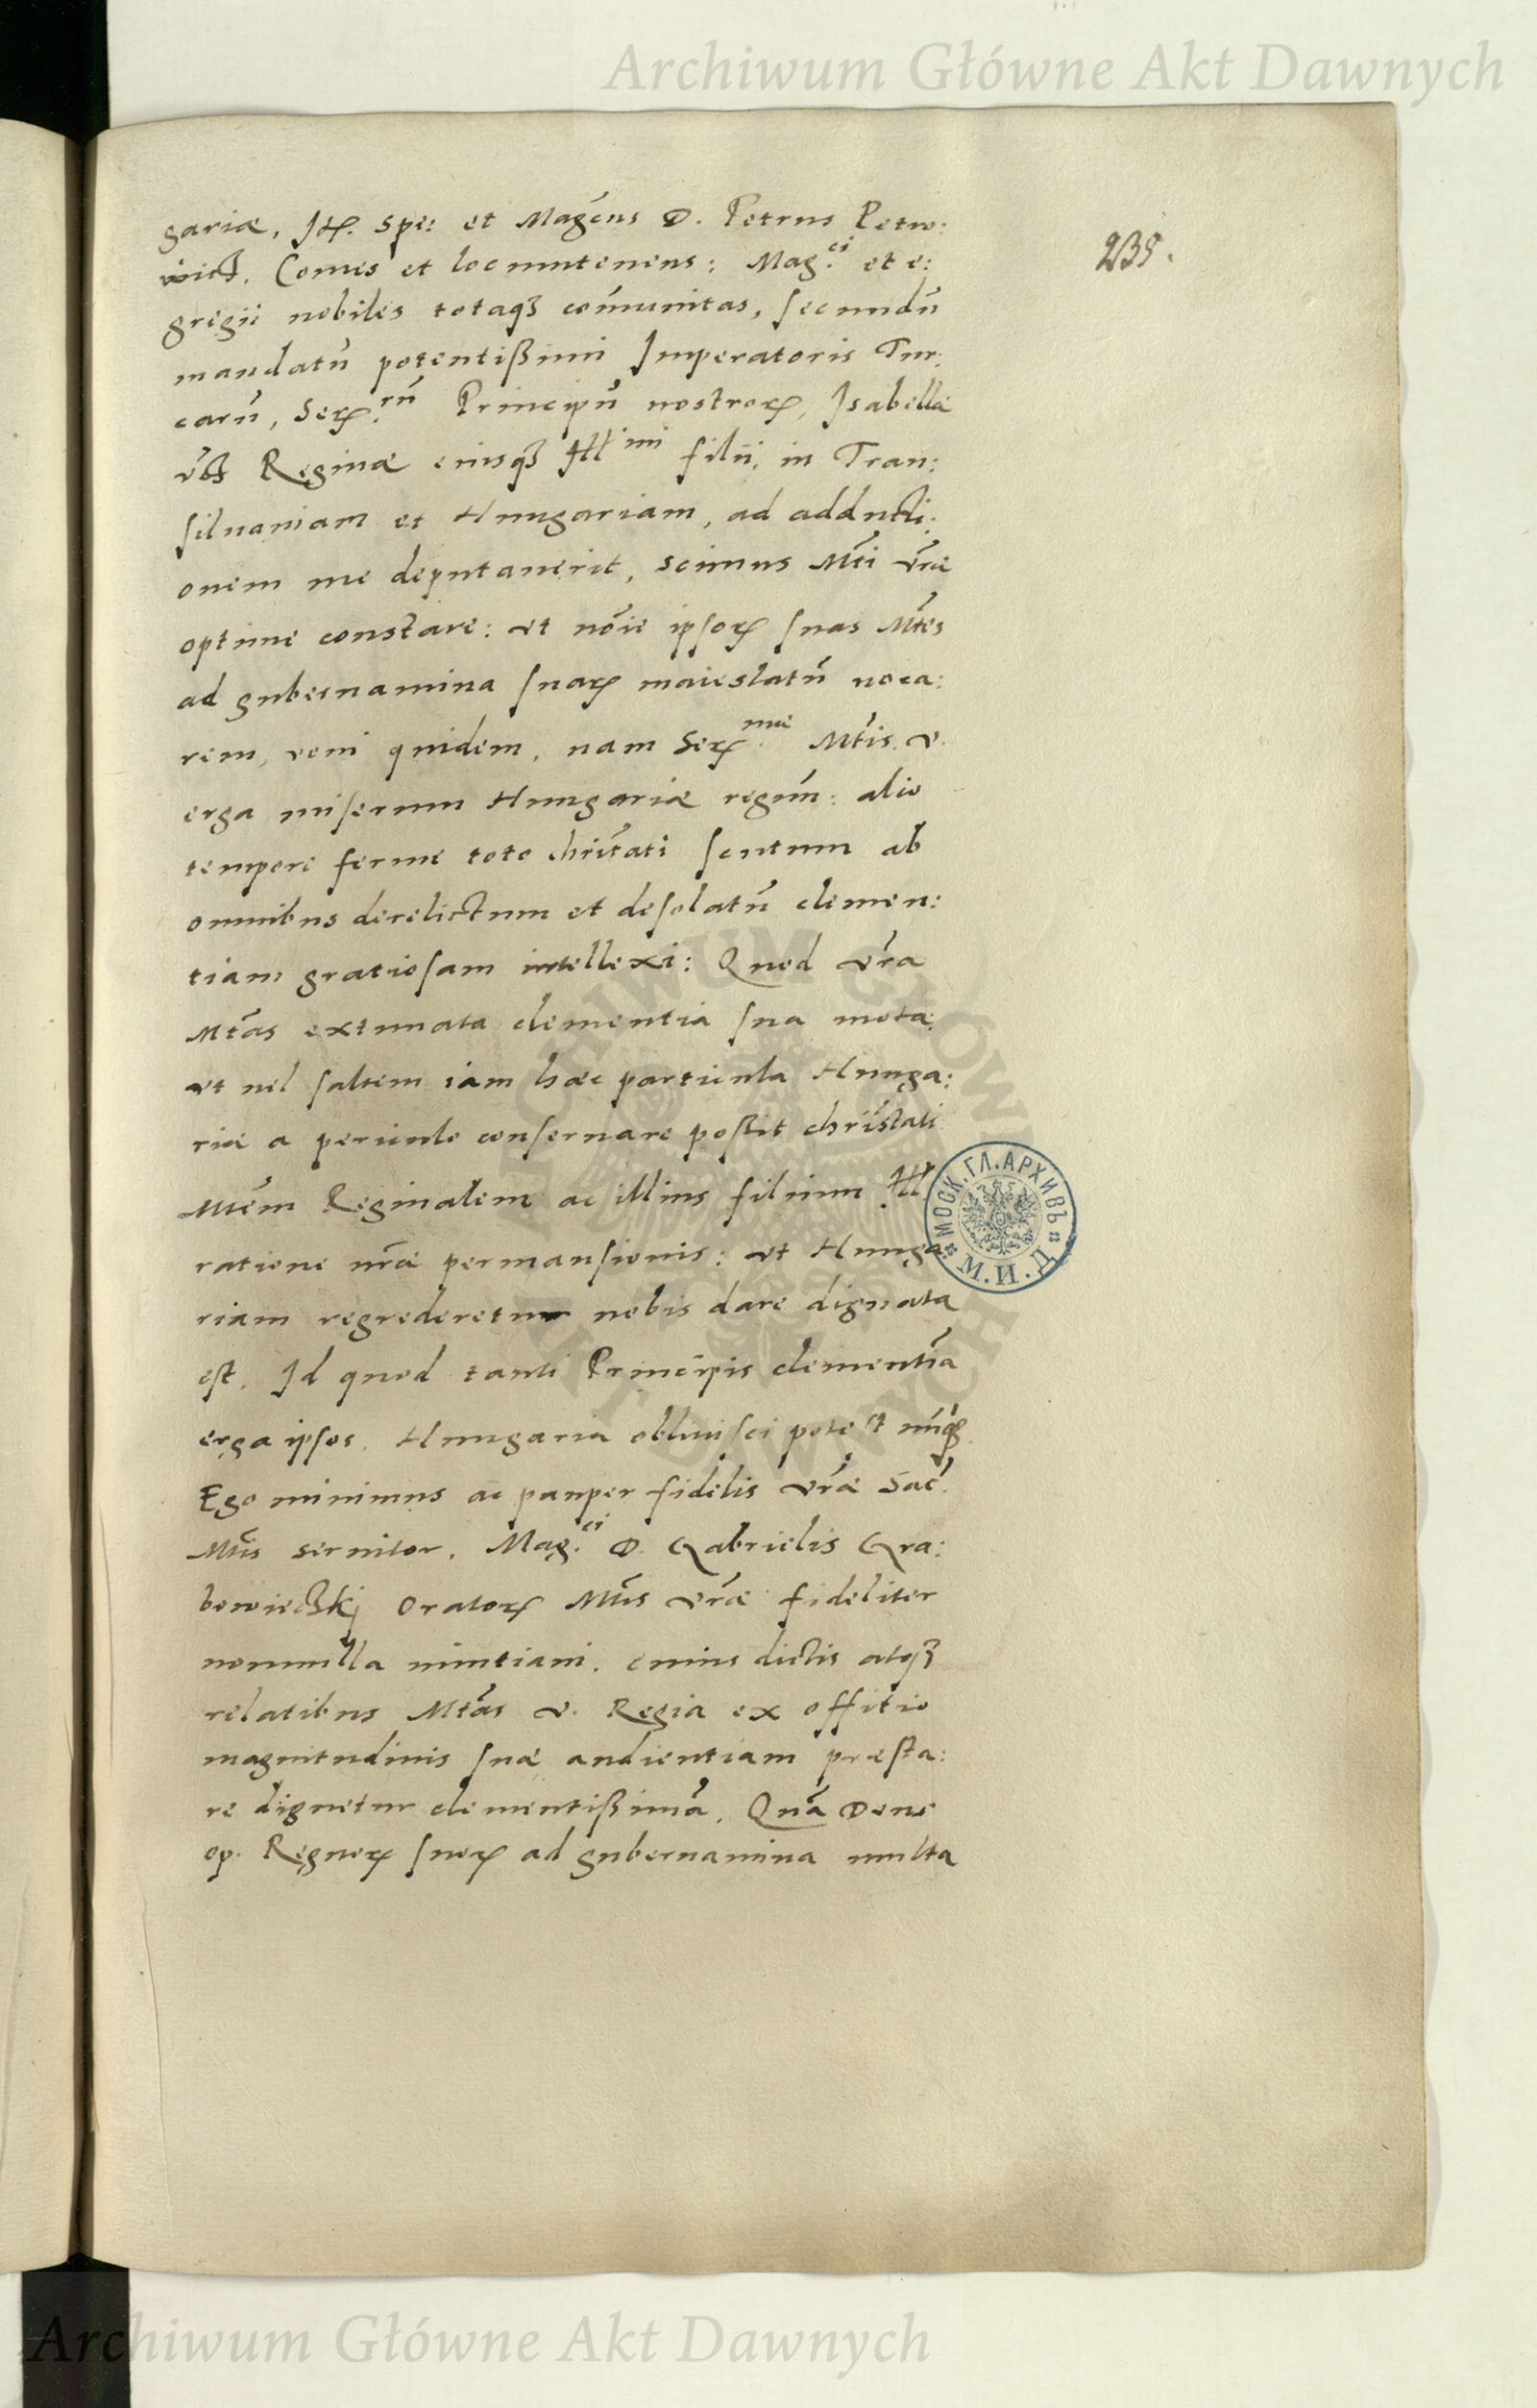 Archiwum Główne Akt Dawnych
235.
gariæ, Itꝝ. Spe: et Magcūs D. Petrus Petro:
Comes et locumtenens: Mag.ci et e:
gregii nobiles totaqꝫ com̄unitas, secundū
mandatū potentißimi Imperatoris Tur:
carū, Serꝝ.rū Principū nostroꝝ, Isabellæ
Reginæ eiusqꝫ Illmi filii, in Tran:
siluaniam et Hungariam, ad adducti:
onem me deputauerit, scimus Mti vræ
optime constare: vt nōie ipsoꝝ suas Mtes
ad gubernamina suaꝝ maiestatū uoca:
rem, veni quidem, nam Serꝝ.mæ Mtis. v.
erga miserum Hungariæ regnm̄: alio
tempore ferme toto chrītati scutum ab
omnibus derelictum et desolatū clemen:
tiam gratiosam intellexi: Quod vr̄a
Mtas ex innata clementia sua mota
vt uel saltem iam hæc particula Hunga:
riæ a periculo conseruare poßit chrīstati
Mtem Reginalem ac illius filium Ill
ratione nr̄æ permansionis: vt Hunga
riam regrederetur nobis dare dignata
est. Id quod tanti Principis clementiā
erga ipsos, Hungaria obliuisci potest nūqꝫ
Ego minimus ac pauper fidelis vr̄æ Sac.
Mtis seruitor. Mag.ci D. Gabrielis Gra:
bowieczkj Oratoꝝ Mtis vr̄æ fideliter
nonnulla nuntiaui. cuius dictis atqꝫ
relatibus Mtas v. Regia ex offitio
magnitudinis suæ audientiam præsta:
re dignetur clementißimā. Quā Deus
op. Regnoꝝ suoꝝ ad gubernamina multa
МОСК. ГЛ. АРХИВЪ
М. И. Д.
Archiwum Główne Akt Dawnych